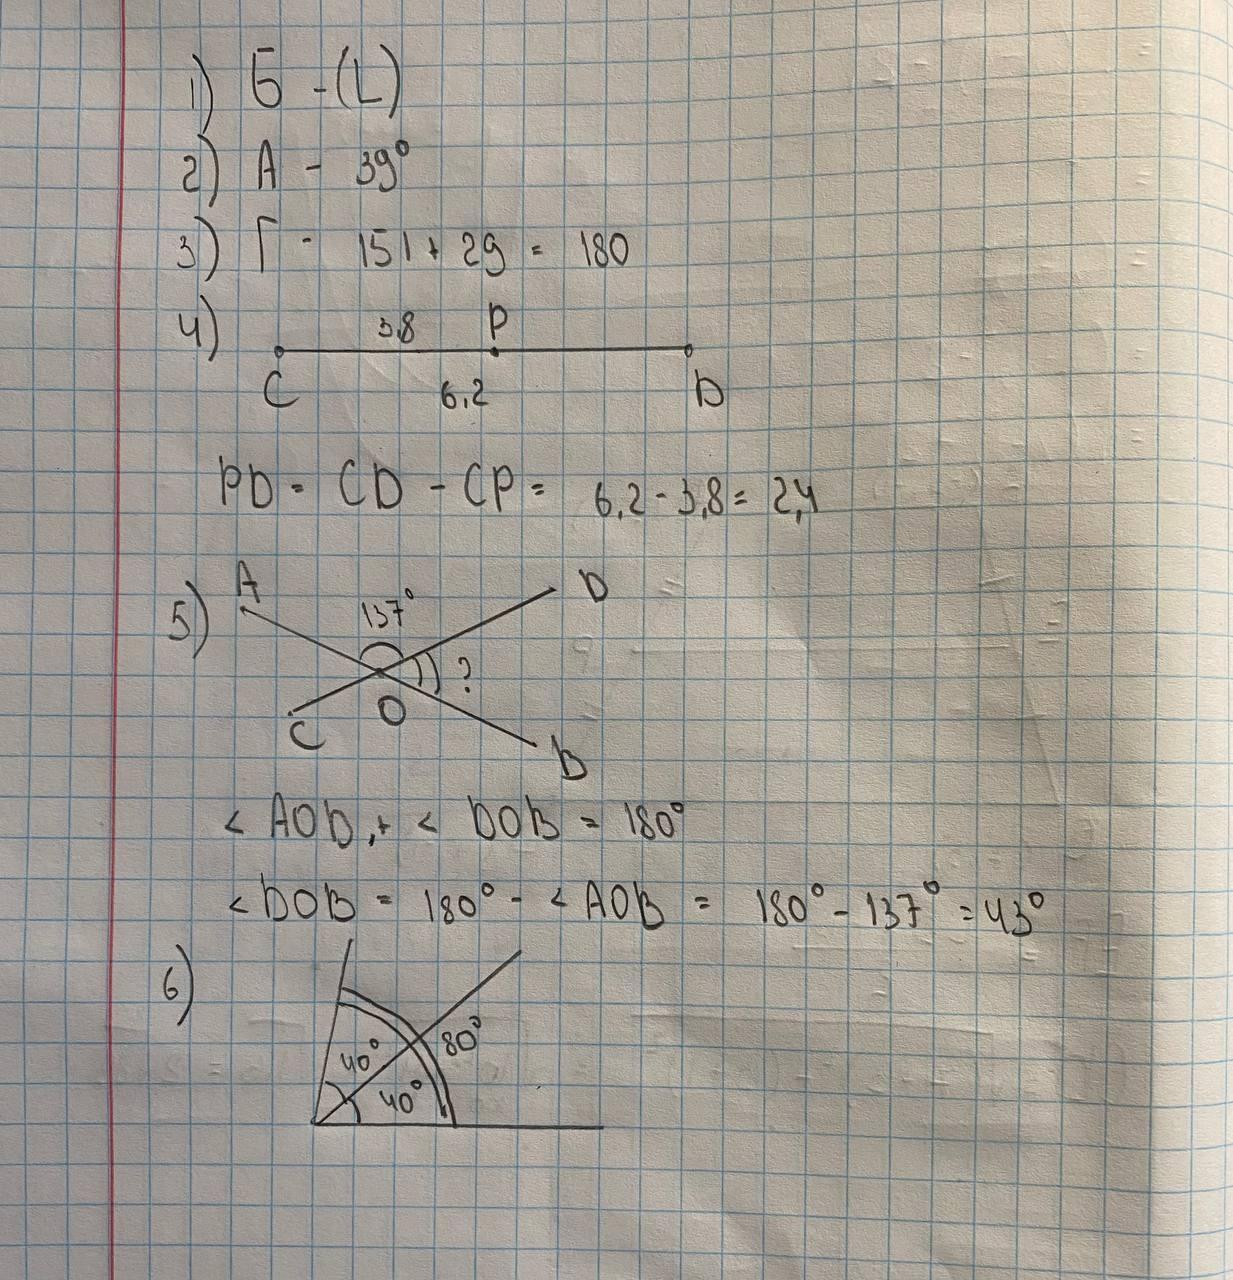 1) Б - (L)
2) А - 39°
3) Г - 151 + 29 = 180
4) 3,8 P
C 6,2 D
PD = CD - CP = 6,2 - 3,8 = 2,4
5) A 137° D
?
C O B
< AOD + < DOB = 180°
< DOB = 180° - < AOB = 180° - 137° = 43°
6) 40° 80°
40°